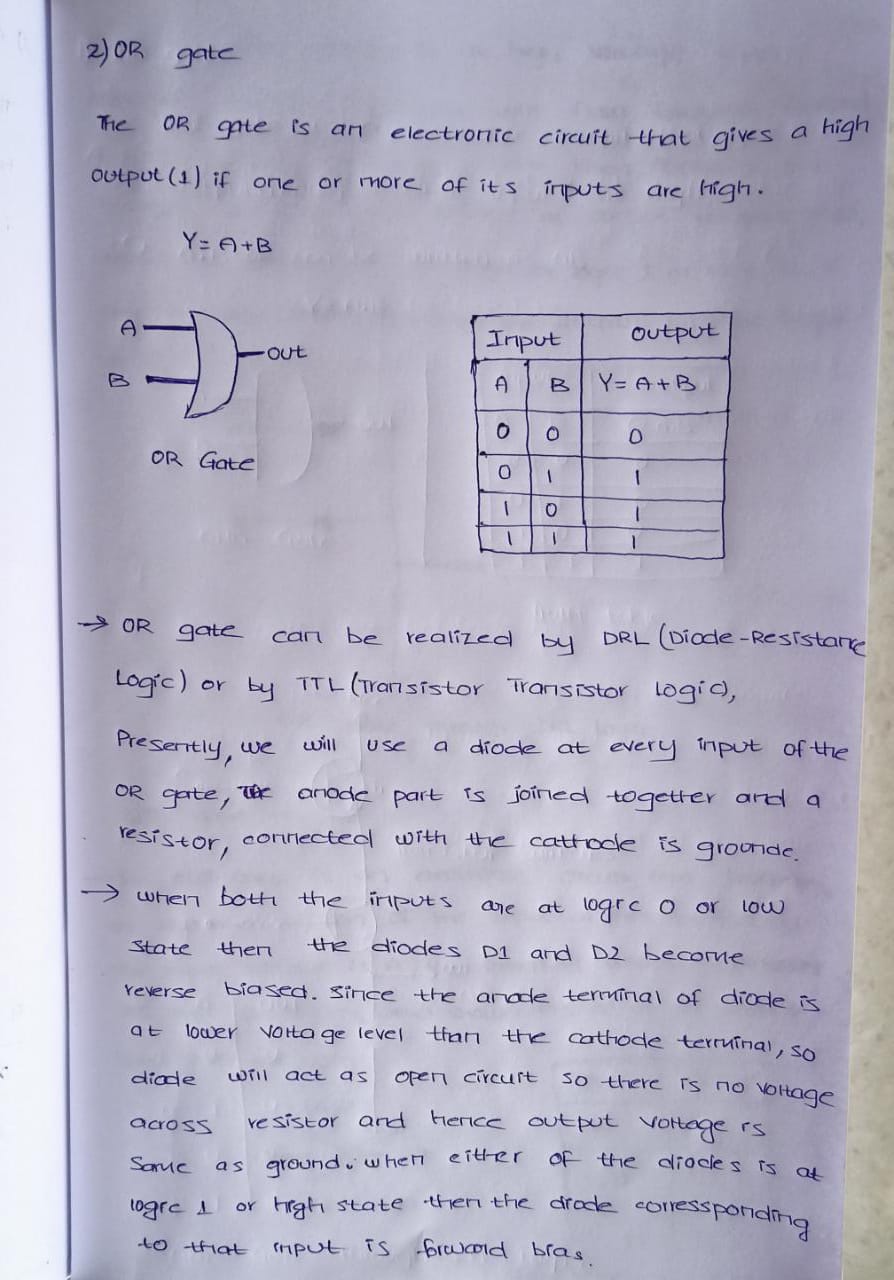 2) OR gate
The OR gate is an electronic circuit that gives a high
output (1) if one or more of its inputs are high.
Y = A+B
A
B
out
OR Gate
Input Output
A B Y = A + B
0 0 0
0 1 1
1 0 1
1 1 1
→ OR gate can be realized by DRL (Diode-Resistance
Logic) or by TTL (Transistor Transistor logic),
Presently, we will use a diode at every input of the
OR gate, The anode part is joined together and a
resistor, connected with the cathode is grounde.
→ when both the inputs are at logic 0 or low
state then the diodes D1 and D2 become
reverse biased. Since the anode terminal of diode is
at lower voltage level than the cathode terminal, so
diode will act as open circuit so there is no voltage
across resistor and hence output voltage is
Same as ground. when either of the diodes is at
logic 1 or high state then the diode corressponding
to that input is forward bias.